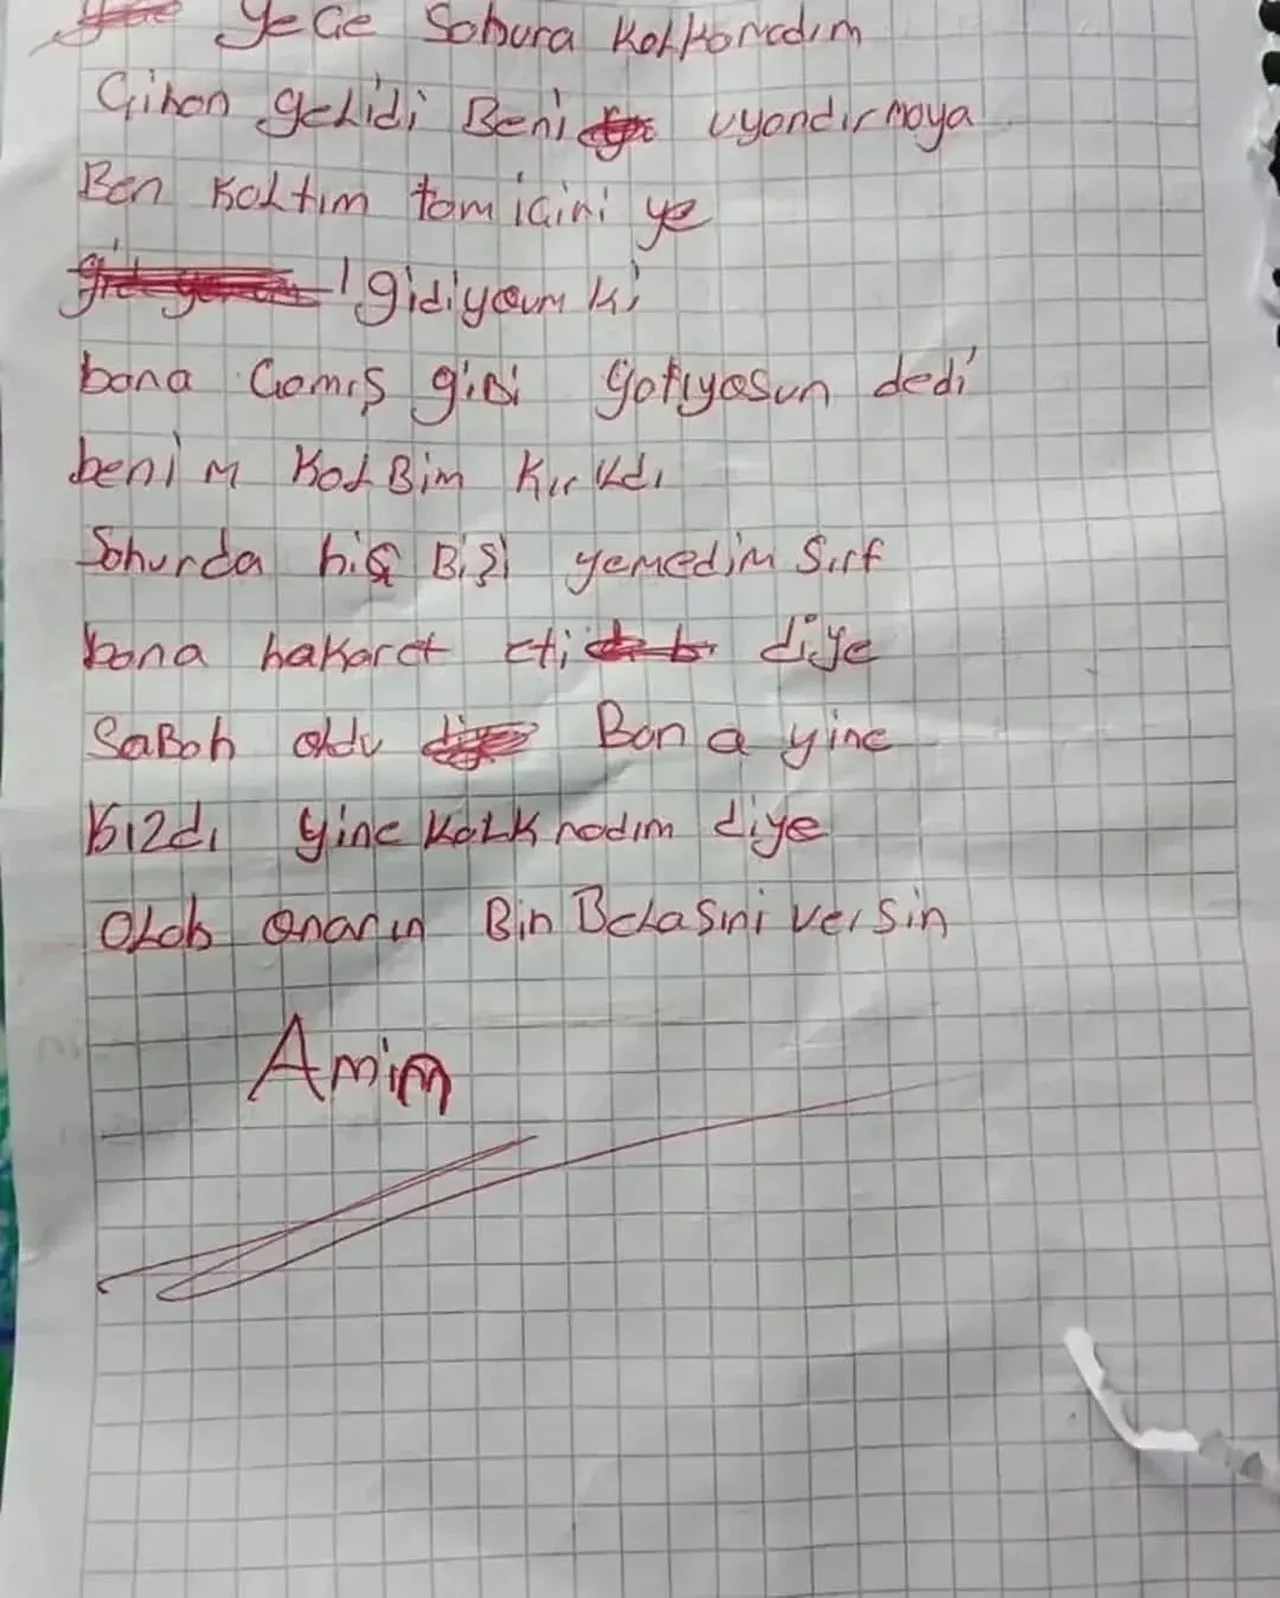 yece Sohura Kalkamadım
Cihan gelidi Beni uyandırmaya
Ben Kalktım tam içini ye
gidiyoum ki
bana Camış gibi yatıyosun dedi
benim Kalbim Kırıldı
Sohurda hiç Bişi yemedim Sırf
bana hakaret etti diye
SaBah oldu Bana yine
Kızdı yine Kalkmadım diye
Olah onarın Bin Belasını versin
Amim